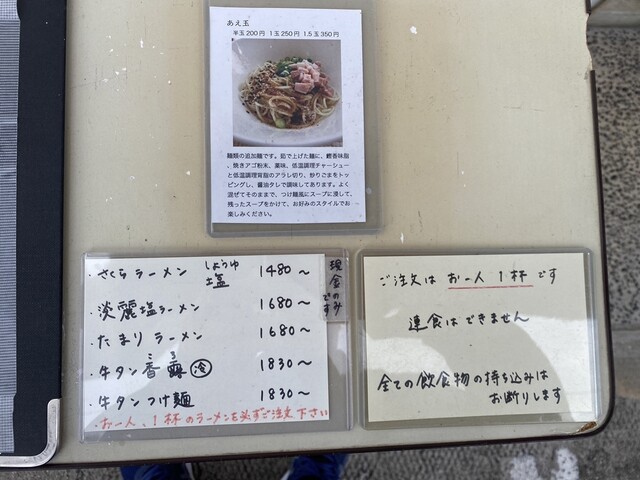 あえ玉
半玉200円 1玉250円 1.5玉350円
麺類の追加麺です。茹で上げた麺に、鰹香味脂
、焼きアゴ粉末、薬味、低温調理チャーシュー
と低温調理背脂のアラレ切り、炒りごまをトッ
ピングし、醤油タレで調味してあります。よく
混ぜてそのままで、つけ麺風にスープに浸して、
残ったスープをかけて、お好みのスタイルでお
楽しみください。
・さくらラーメン しょうゆ 塩 1480〜
・淡麗塩ラーメン 1680〜
・たまりラーメン 1680〜
・牛タン香露 冷 1830〜
・牛タンつけ麺 1830〜
・お一人、1杯のラーメンを必ずご注文下さい
現金のみ
です
ご注文は お一人 1杯 です
連食はできません
全ての飲食物の持ち込みは
お断りします